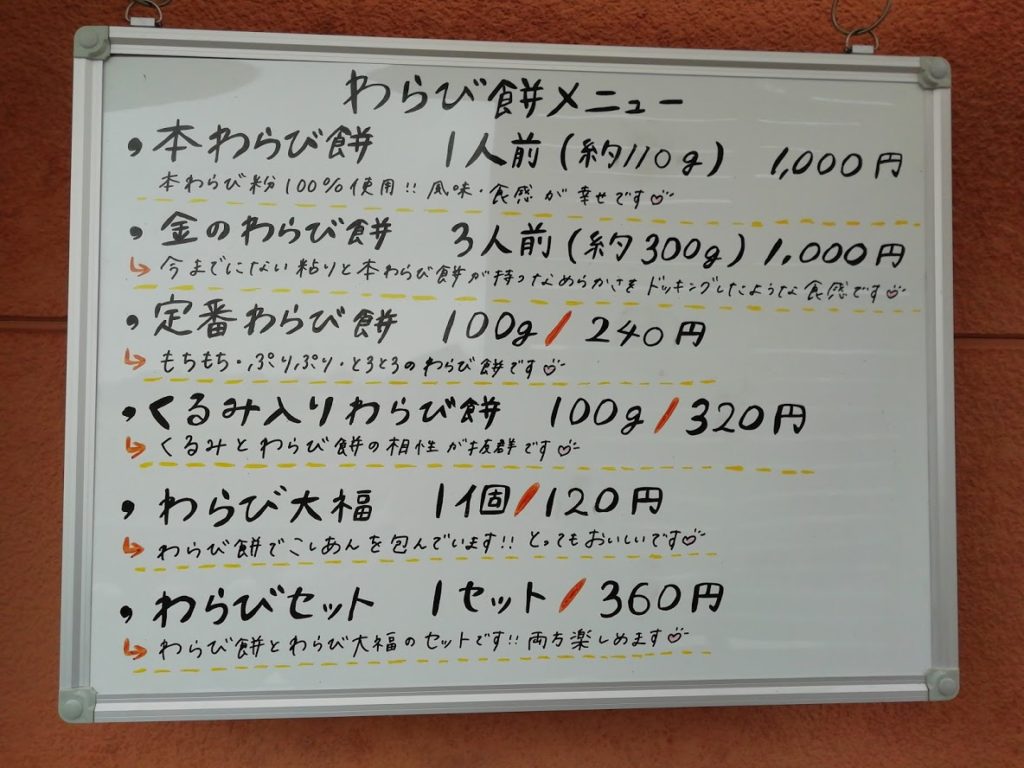 わらび餅メニュー
本わらび餅 1人前(約110g) 1,000円
本わらび粉100%使用!! 風味・食感が幸せです♡
金のわらび餅 3人前(約300g) 1,000円
↳ 今までにない粘りと本わらび餅が持つなめらかさをドッキングしたような食感です♡
定番わらび餅 100g/240円
↳ もちもち・ぷりぷり・とろとろのわらび餅です♡
くるみ入りわらび餅 100g/320円
↳ くるみとわらび餅の相性が抜群です♡
わらび大福 1個/120円
↳ わらび餅でこしあんを包んでいます!! とってもおいしいです♡
わらびセット 1セット/360円
↳ わらび餅とわらび大福のセットです!! 両方楽しめます♡